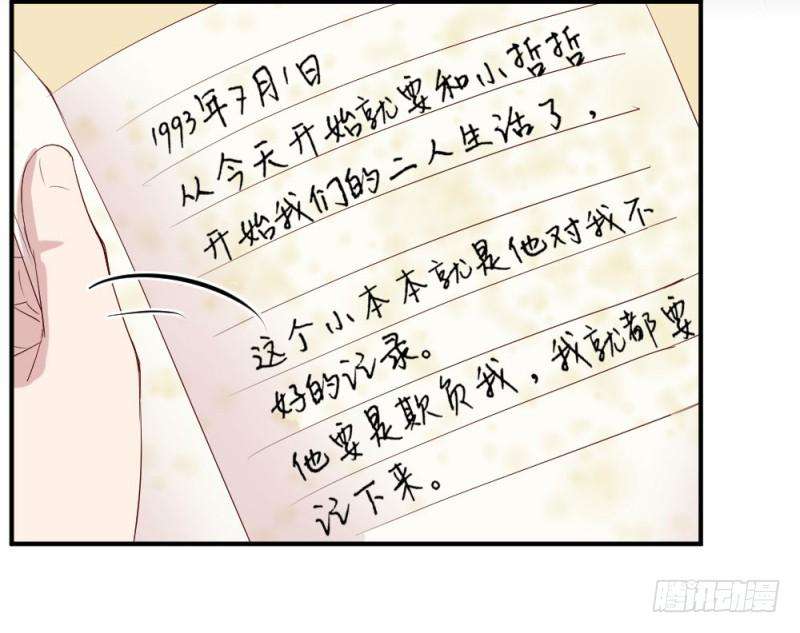 1993年7月1日
从今天开始就要和小哲哲
开始我们的二人生活了，
这个小本本就是他对我不
好的记录。
他要是欺负我，我就都要
记下来。
腾讯动漫